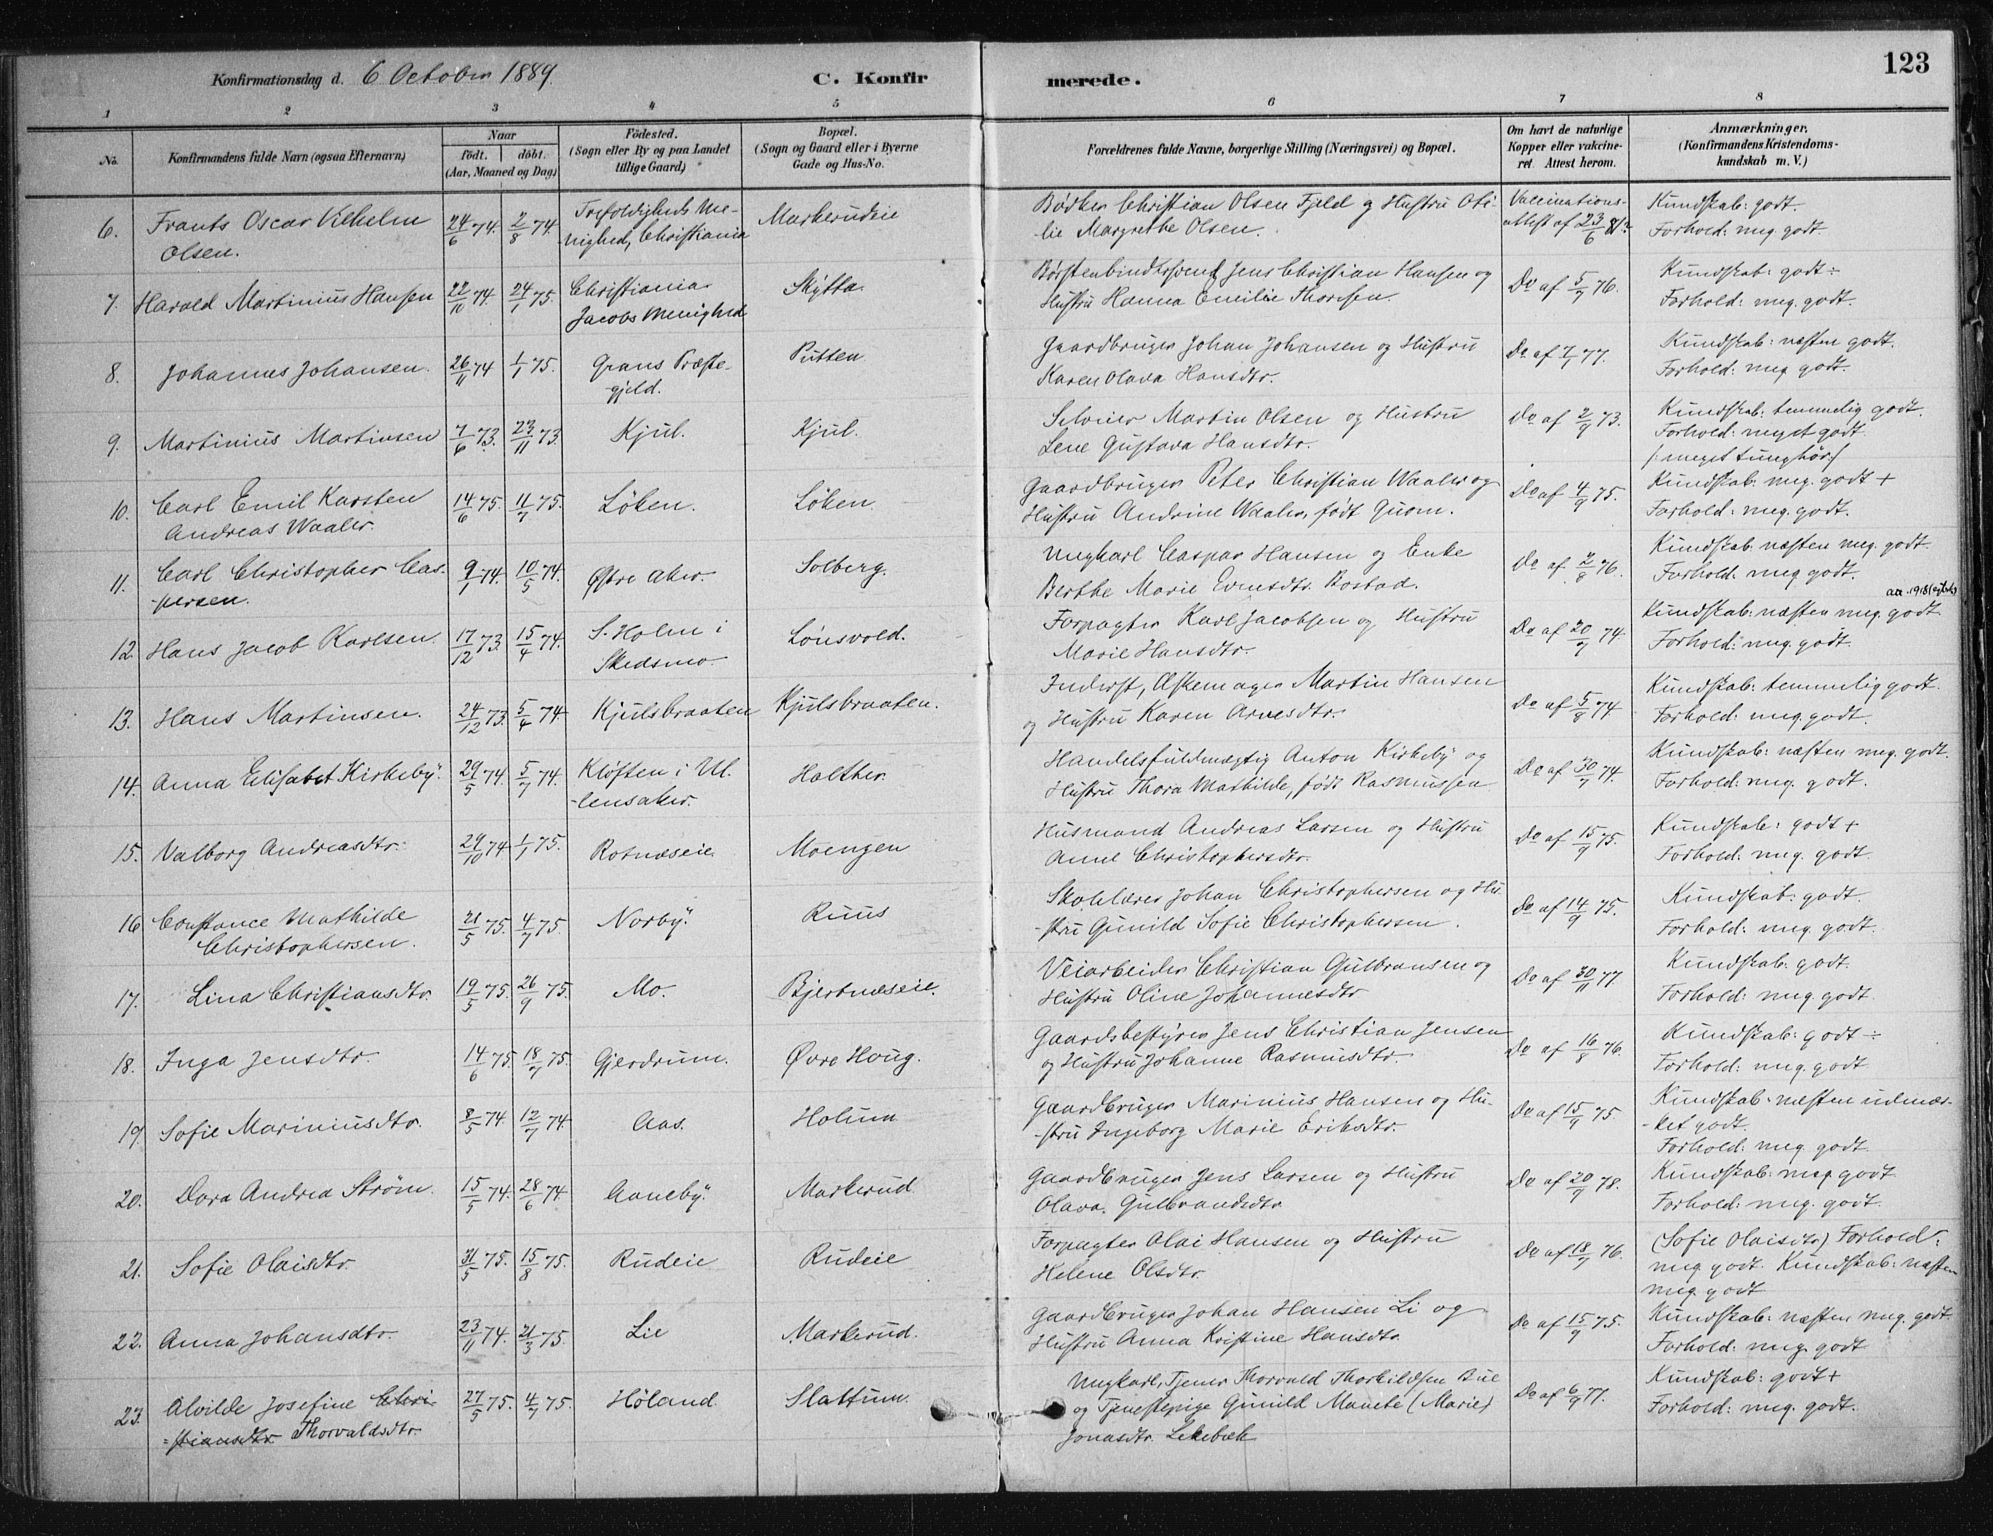 Konfirmationsdag d. 6 October 1889. C. Konfirmerede. 123
1 2 3 4 5 6 7 8
No. Konfirmandens fulde Navn (ogsaa Efternavn) Naar født. døbt. (Aar, Maaned og Dag) Födested. (Sogn eller By og paa Landet tillige Gaard) Bopæl. (Sogn og Gaard eller i Byerne Gade og Hus-No. Forældrenes fulde Navne, borgerlige Stilling (Næringsvei) og Bopæl. Om havt de naturlige Kopper eller vakcineret. Attest herom. Anmærkninger. (Konfirmandens Kristendomskundskab m. V.)
6. Frants Oscar Vilhelm Olsen. 24/6 74. 2/8 74 Trefoldigheds Menighed, Christiania Markerudeie Bødker Christian Olsen Fjeld og Hustru Otilie Margrethe Olsen. Vaccinationsattest af 23/6 81 Kundskab: godt. Forhold: meg. godt.
7. Harald Martinius Hansen 22/10 74 24/1 75. Christiania Jacobs Menighed Skytta Børstenbindersvend Jens Christian Hansen og Hustru Hanna Emilie Thoresen. Do af 5/7 76. Kundskab: godt ÷ Forhold: meg. godt.
8. Johannes Johansen. 26/11 74 1/1 75. Grans Præstegjeld. Putten Gaardbruger Johan Johansen og Hustru Karen Olava Hansdtr. Do af 7/1 77. Kundskab: næsten godt. Forhold: meg. godt.
9. Martinius Martinsen 7/6 73. 23/11 73. Kjul. Kjul. Selveier Martin Olsen og Hustru Lene Gustava Hansdtr. Do af 2/9 73. Kundskab: temmelig godt. Forhold: meget godt. /: meget tunghør :/
10. Carl Emil Karsten Andreas Waaler. 14/6 75. 11/7 75. Løken. Løken. Gaardbruger Peter Christian Waaler og Hustru Andrine Waaler, født Quom. Do af 4/9 75. Kundskab: meg. godt + Forhold: meg. godt.
11. Carl Christopher Caspersen. 9/1 74. 10/5 74. Østre Aker. Solberg. Ungkarl Caspar Hansen og Enke Berthe Marie Evensdtr. Rostad. Do af 2/8 76. Kundskab: næsten meg. godt Forhold: meg. godt.
12. Hans Jacob Karlsen. 17/12 73. 15/4 74. S. Holm i Skedsmo. Lønsvold. Forpagter Karl Jacobsen og Hustru Marie Hansdtr. Do af 20/7 74. Kundskab: næsten meg. godt Forhold: meg. godt.
13. Hans Martinsen. 24/12 73. 5/4 74. Kjulsbraaten Kjulsbraaten. Inderst, Æskemager Martin Hansen og Hustru Karen Arnesdtr. Do af 5/8 74 Kundskab: temmelig godt. Forhold: meg. godt.
14. Anna Elisabet Kirkeby. 29/5 74. 5/7 74. Kløften i Ullensaker. Holther. Handelsfuldmægtig Anton Kirkeby og Hustru Thora Mathilde, født Rasmussen Do af 30/7 74. Kundskab: næsten meg. godt. Forhold: meg. godt.
15. Valborg Andreasdtr. 29/10 74 1/1 75. Rotnæseie Moengen Husmand Andreas Larsen og Hustru Anne Christophersdtr. Do af 15/9 75. Kundskab: godt + Forhold: meg. godt.
16 Constance Mathilde Christophersen. 21/5 75. 4/7 75. Norby. Ruus Skolelærer Johan Christophersen og Hustru Gunild Sofie Christophersen. Do af 14/9 75. Kundskab: godt. Forhold: meg. godt.
17. Lina Christiansdtr. 19/5 75. 26/9 75. Mo. Bjertnæseie. Veiarbeider Christian Gulbransen og Hustru Oline Johannesdtr Do af 30/11 77. Kundskab: godt. Forhold: meg. godt.
18. Inga Jensdtr. 14/6 75. 18/7 75. Gjerdrum. Øvre Houg. Gaardsbestyrer Jens Christian Jensen og Hustru Johanne Rasmusdtr. Do af 16/8 76. Kundskab: godt ÷ Forhold: meg. godt
19. Sofie Mariniusdtr. 8/5 74. 12/7 74 Aas. Holum Gaardbruger Marinius Hansen og Hustru Ingeborg Marie Eriksdtr. Do af 15/9 75. Kundskab: næsten udmærket godt. Forhold: meg. godt
20. Dora Andrea Strøm. 15/5 74. 28/6 74 Aaneby. Markerud. Gaardbruger Jens Larsen og Hustru Olava Gulbrandsdtr Do af 20/9 78. Kundskab: meg. godt Forhold: meg. godt.
21. Sofie Olaisdtr. 31/5 75. 15/8 75. Rudeie Rudeie Forpagter Olai Hansen og Hustru Helene Olsdtr. Do af 18/7 76. (Sofie Olaisdtr) Forhold: meg. godt. Kundskab: næsten meg. godt
22. Anna Johansdtr. 23/11 74. 21/3 75. Lie Markerud. Gaardbruger Johan Hansen Li og Hustru Anna Kristine Hansdtr. Do af 15/9 75. Kundskab: næsten meg. godt. Forhold: meg. godt
23. Alvilde Josefine Christiansdtr Thorvaldsdtr. 27/5 75. 4/7 75. Høland. Slattum Ungkarl, Tjener Thorvald Thorkildsen Bue og Tjenestepige Gunild Manete (Marie) Jonasdtr. Lekebæk Do af 6/9 77. Kundskab: godt + Forhold: meg. godt.